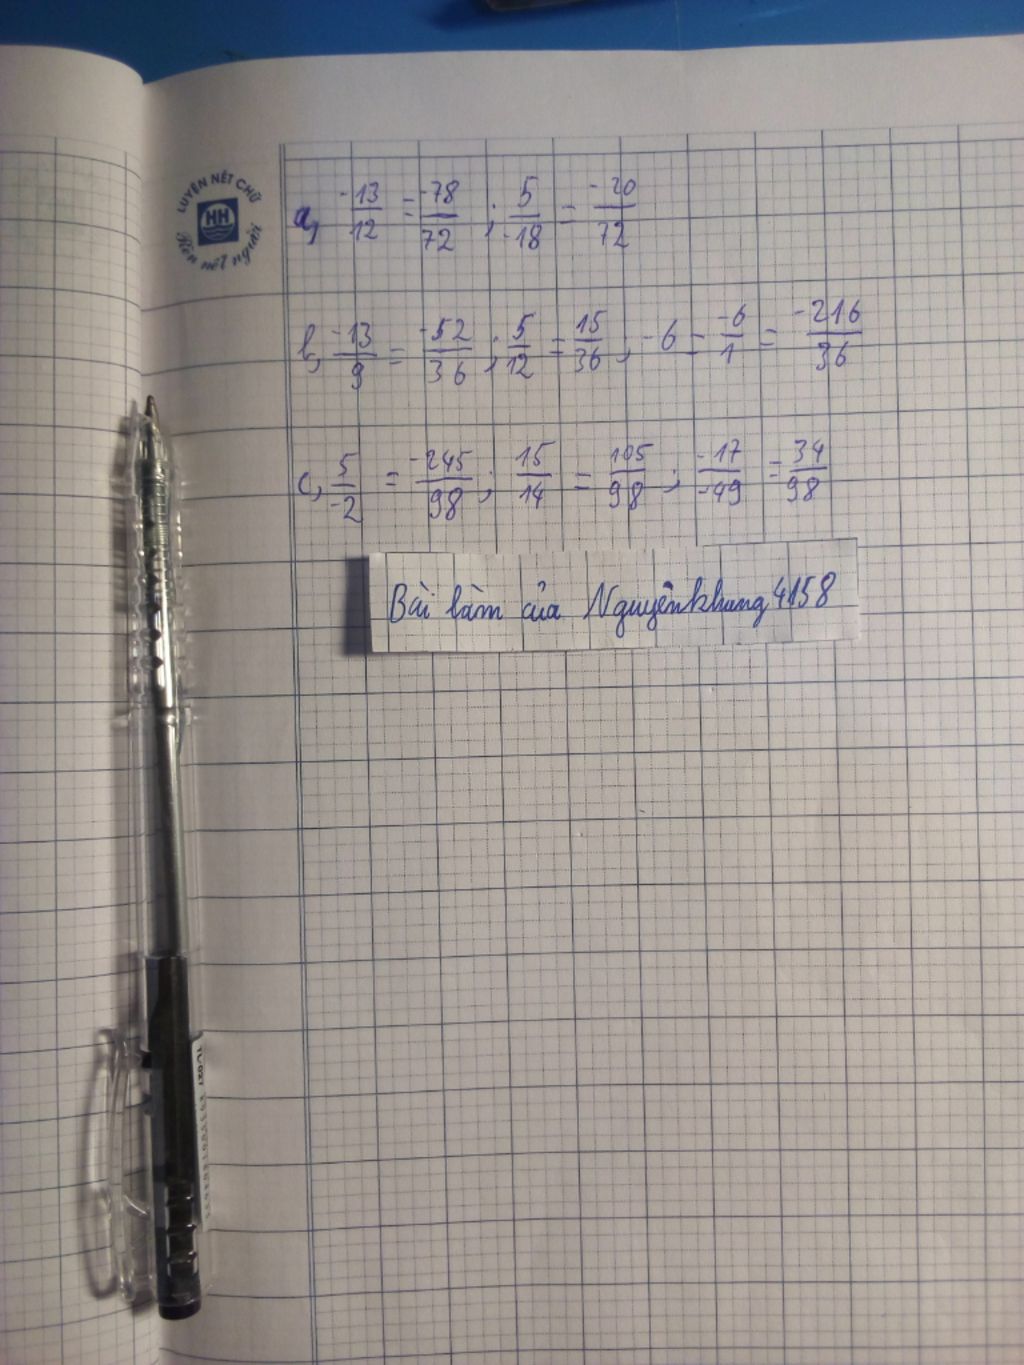 LUYỆN NÉT CHỮ
HH
Rèn nết người
a, -13/12 = -78/72 ; 5/-18 = -20/72
b, -13/9 = -52/36 ; 5/12 = 15/36 ; -6 = -6/1 = -216/36
c, 5/-2 = -245/98 ; 15/14 = 105/98 ; -17/-49 = 34/98
Bài làm của Nguyênkhung4158
TL-027